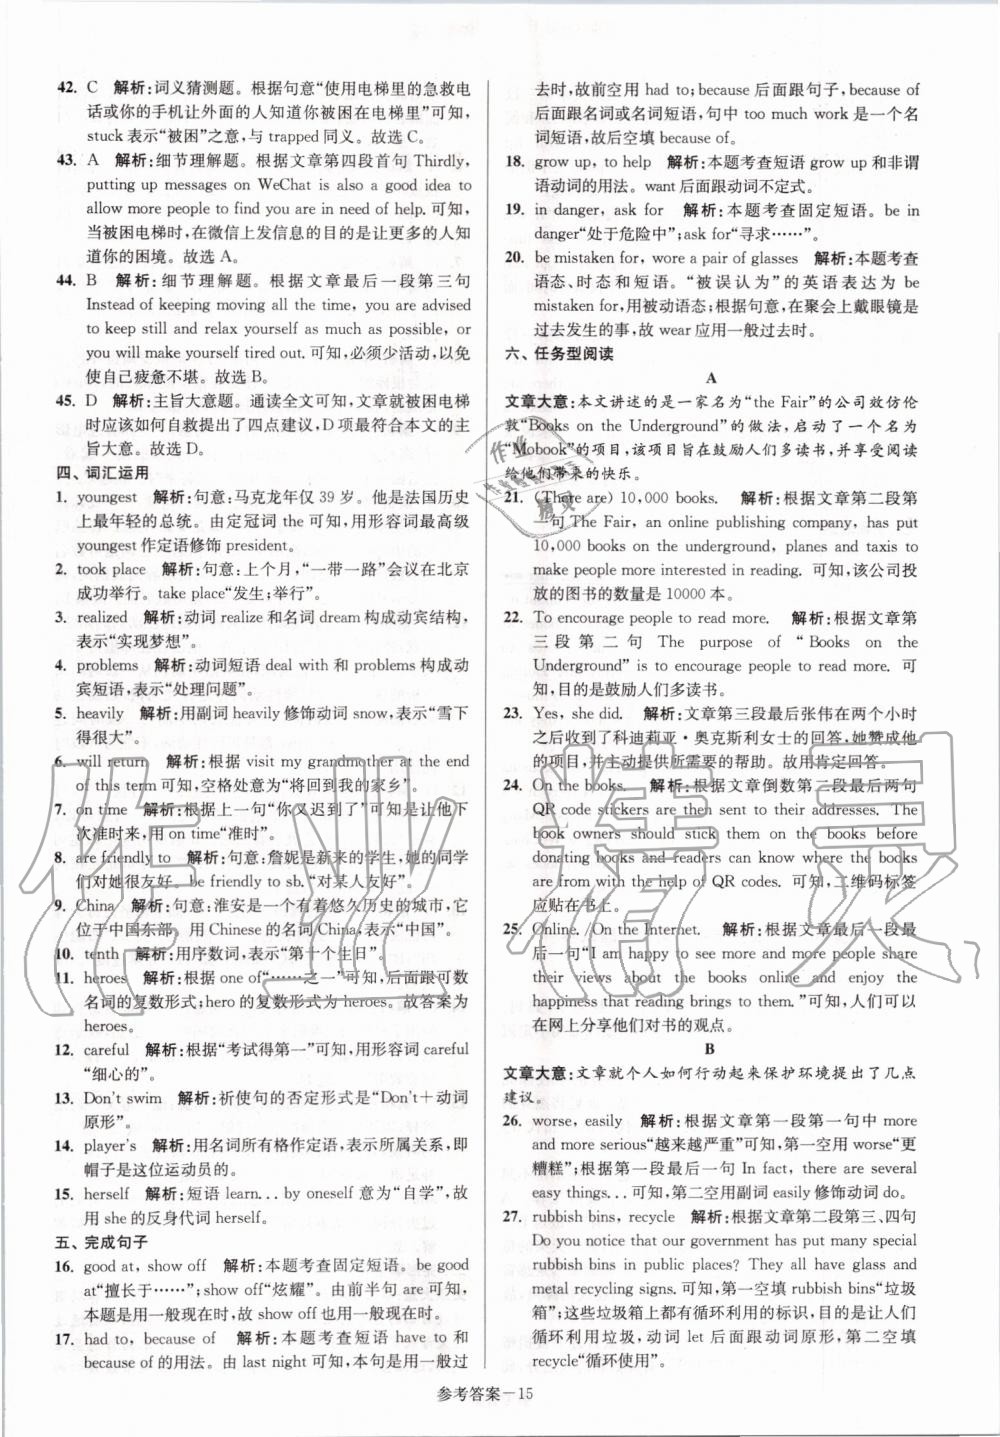 42. C　解析:词义猜测题。根据句意“使用电梯里的急救电
话或你的手机让外面的人知道你被困在电梯里”可知,
stuck 表示“被困”之意,与 trapped 同义。故选 C。
43. A　解析:细节理解题。根据文章第四段首句 Thirdly,
putting up messages on WeChat is also a good idea to
allow more people to find you are in need of help. 可知,
当被困电梯时,在微信上发信息的目的是让更多的人知
道你的困境。故选 A。
44. B　解析:细节理解题。根据文章最后一段第三句
Instead of keeping moving all the time, you are advised
to keep still and relax yourself as much as possible, or
you will make yourself tired out. 可知,必须少活动,以免
使自己疲惫不堪。故选 B。
45. D　解析:主旨大意题。通读全文可知,文章就被困电梯
时应该如何自救提出了四点建议,D 项最符合本文的主
旨大意。故选 D。
四、词汇运用
1. youngest　解析:句意:马克龙年仅 39 岁。他是法国历史
上最年轻的总统。由定冠词 the 可知,用形容词最高级
youngest 作定语修饰 president.
2. took place　解析:句意:上个月,“一带一路”会议在北京
成功举行。take place“发生;举行”。
3. realized　解析:动词 realize 和名词 dream 构成动宾结构,
表示“实现梦想”。
4. problems　解析:动词短语 deal with 和 problems 构成动
宾短语,表示“处理问题”。
5. heavily　解析:用副词 heavily 修饰动词 snow,表示“雪下
得很大”。
6. will return　解析:根据 visit my grandmother at the end
of this term 可知,空格处意为“将回到我的家乡”。
7. on time　解析:根据上一句“你又迟到了”可知是让他下
次准时来,用 on time“准时”。
8. are friendly to　解析:句意:詹妮是新来的学生,她的同学
们对她很友好。be friendly to sb.“对某人友好”。
9. China　解析:句意:淮安是一个有着悠久历史的城市,它
位于中国东部。用 Chinese 的名词 China,表示“中国”。
10. tenth　解析:用序数词,表示“第十个生日”。
11. heroes　解析:根据 one of“……之一”可知,后面跟可数
名词的复数形式;hero 的复数形式为 heroes。故答案为
heroes。
12. careful　解析:根据“考试得第一”可知,用形容词 careful
“细心的”。
13. Don't swim　解析:祈使句的否定形式是“Don't＋动词
原形”。
14. player's　解析:用名词所有格作定语,表示所属关系,即
帽子是这位运动员的。
15. herself　解析:短语 learn... by oneself 意为“自学”,故
用 she 的反身代词 herself。
五、完成句子
16. good at, show off　解析:本题考查固定短语。be good
at“擅长于……”;show off“炫耀”。由前半句 are 可知,
本题是用一般现在时,故 show off 也用一般现在时。
17. had to, because of　解析:本题考查短语 have to 和
because of 的用法。由 last night 可知,本句是用一般过
去时,故前空用 had to;because 后面跟句子,because of
后面跟名词或名词短语,句中 too much work 是一个名
词短语,故后空填 because of。
18. grow up, to help　解析:本题考查短语 grow up 和非谓
语动词的用法。want 后面跟动词不定式。
19. in danger, ask for　解析:本题考查固定短语。be in
danger“处于危险中”;ask for“寻求……”。
20. be mistaken for, wore a pair of glasses　解析:本题考查
语态、时态和短语。“被误认为”的英语表达为 be
mistaken for,用被动语态;根据句意,在聚会上戴眼镜是
过去发生的事,故 wear 应用一般过去时。
六、任务型阅读
A
文章大意:本文讲述的是一家名为“the Fair”的公司效仿伦
敦“Books on the Underground”的做法,启动了一个名为
“Mobook”的项目,该项目旨在鼓励人们多读书,并享受阅读
给他们带来的快乐。
21. (There are) 10,000 books.　解析:根据文章第二段第
一句 The Fair, an online publishing company, has put
10,000 books on the underground, planes and taxis to
make people more interested in reading. 可知,该公司投
放的图书的数量是 10000 本。
22. To encourage people to read more.　解析:根据文章第
三段第二句 The purpose of “Books on the
Underground” is to encourage people to read more. 可
知,目的是鼓励人们多读书。
23. Yes, she did.　解析:文章第三段最后张伟在两个小时
之后收到了科迪莉亚·奥克斯利女士的回答,她赞成他
的项目,并主动提供所需要的帮助。故用肯定回答。
24. On the books.　解析:根据文章倒数第二段最后两句
QR code stickers are then sent to their addresses. The
book owners should stick them on the books before
donating books and readers can know where the books
are from with the help of QR codes. 可知,二维码标签
应贴在书上。
25. Online. /On the Internet.　解析:根据文章最后一段最
后一句“I am happy to see more and more people share
their views about the books online and enjoy the
happiness that reading brings to them.”可知,人们可以
在网上分享他们对书的观点。
B
文章大意:文章就个人如何行动起来保护环境提出了几点
建议。
26. worse, easily　解析:根据文章第一段第一句中 more
and more serious“越来越严重”可知,第一空用 worse“更
糟糕”;根据第一段最后一句 In fact, there are several
easy things... 可知,第二空用副词 easily 修饰动词 do。
27. rubbish bins, recycle　解析:根据文章第二段第三、四句
Do you notice that our government has put many special
rubbish bins in public places? They all have glass and
metal recycling signs. 可知,第一空填 rubbish bins“垃圾
箱”;这些垃圾箱上都有循环利用的标识,目的是让人们
循环利用垃圾,动词 let 后面跟动词原形,第二空填
recycle“循环使用”。
参考答案－15
作业精灵